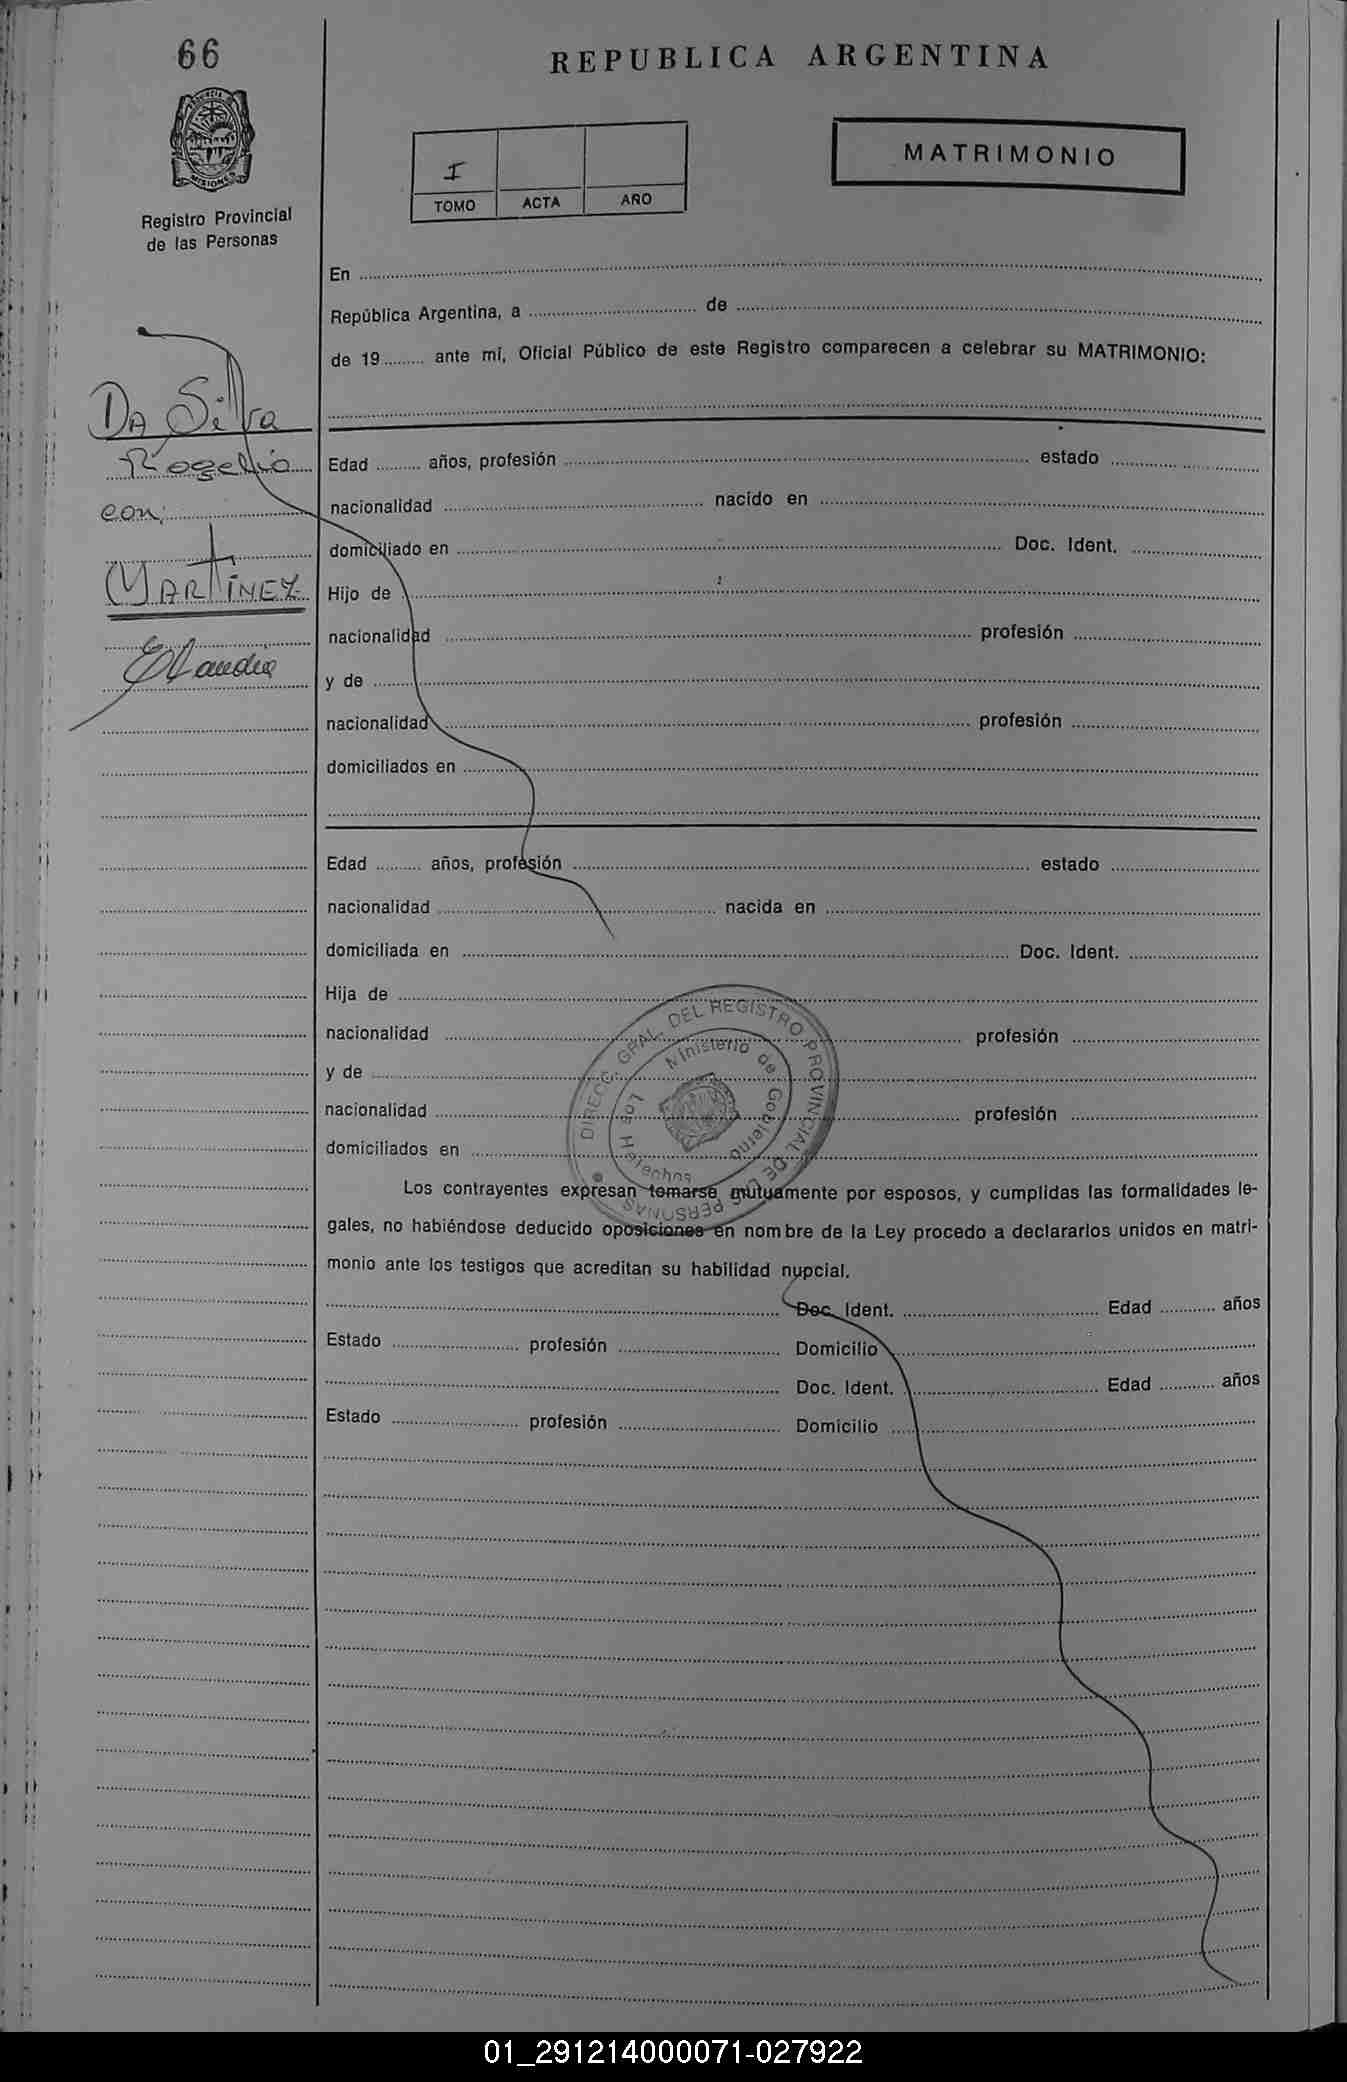 66
PROVINCIA DE
MISIONES
Registro Provincial
de las Personas
REPUBLICA ARGENTINA
I
TOMO ACTA AÑO
MATRIMONIO
En
República Argentina, a de
de 19 ante mí, Oficial Público de este Registro comparecen a celebrar su MATRIMONIO:
Da Silva
Rogelio
con:
MARTÍNEZ
Claudia
Edad años, profesión estado
nacionalidad nacido en
domiciliado en Doc. Ident.
Hijo de
nacionalidad profesión
y de
nacionalidad profesión
domiciliados en
Edad años, profesión estado
nacionalidad nacida en
domiciliada en Doc. Ident.
Hija de
nacionalidad profesión
y de
nacionalidad profesión
domiciliados en
DIRECC. GRAL. DEL REGISTRO PROVINCIAL DE LAS PERSONAS
Ministerio de Gobierno
Los Helechos
Los contrayentes expresan tomarse mutuamente por esposos, y cumplidas las formalidades le-
gales, no habiéndose deducido oposiciones en nombre de la Ley procedo a declararlos unidos en matri-
monio ante los testigos que acreditan su habilidad nupcial.
Doc. Ident. Edad años
Estado profesión Domicilio
Doc. Ident. Edad años
Estado profesión Domicilio
01_291214000071-027922